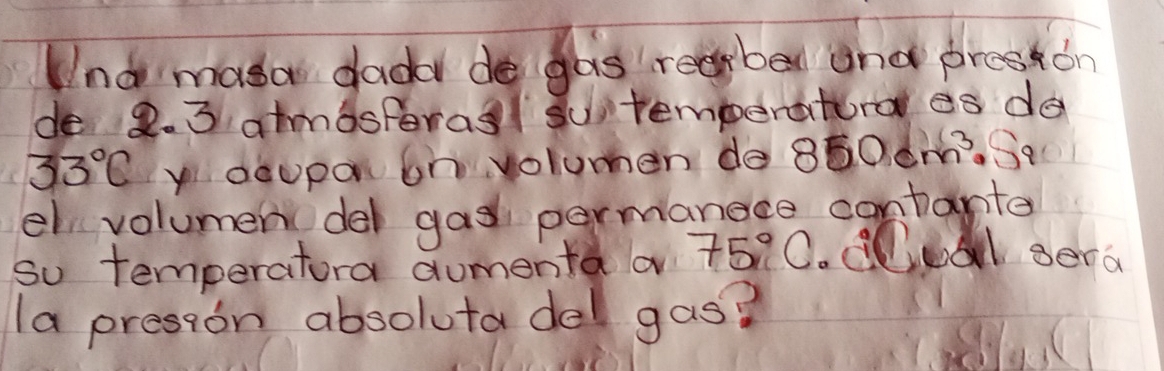 Una masa dada de gas recibe una presión
de 2.3 atmósferas su temperatura es de
33°C y ocupa un volumen de 850cm³. Si
el volumen del gas permanece contante
su temperatura aumenta a 75°C. ¿Cuál será
la presión absoluta del gas?